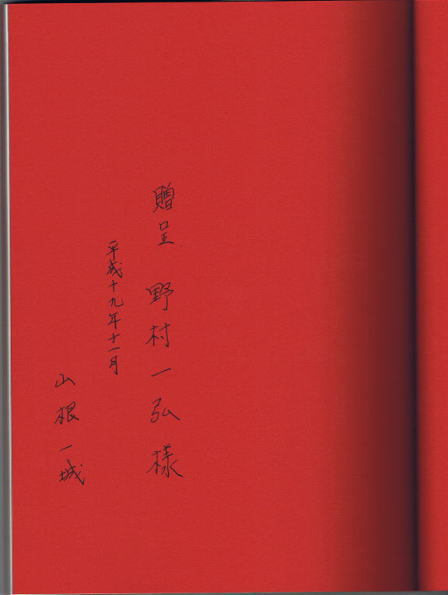 贈呈 野村一弘様
平成十九年十一月
山根一城